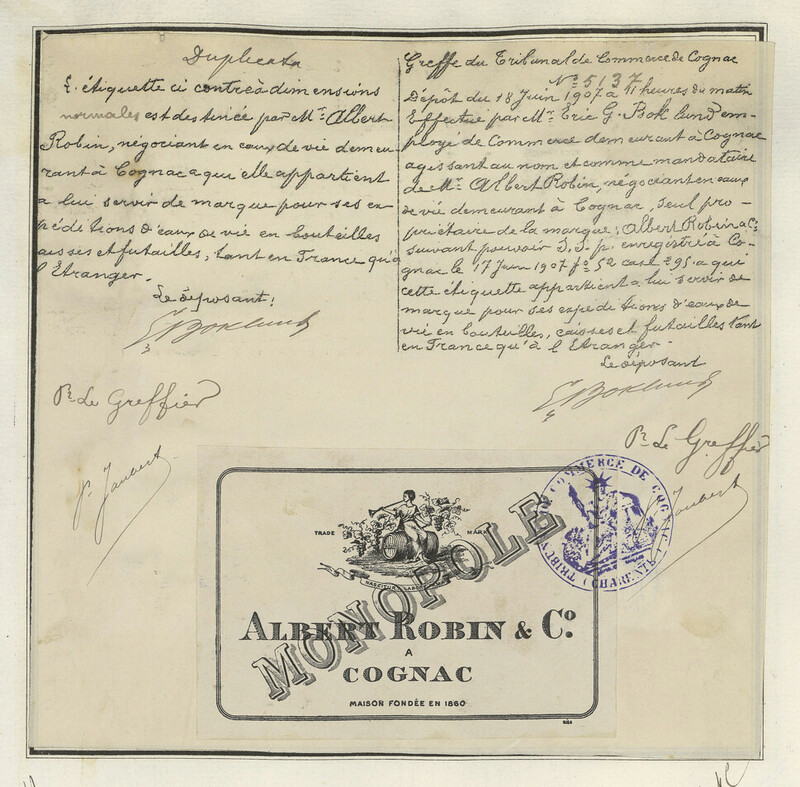 Duplicata
L'étiquette ci contre à dimensions
normales est destinée par Mr Albert
Robin, négociant en eaux de vie demeu
rant à Cognac a qui elle appartient
a lui servir de marque pour ses ex
péditions d'eaux de vie en bouteilles
caisses et futailles, tant en France qu'à
l'Etranger.
Le déposant:
E G Boklund
Pr Le Greffier
P. Joubert
Greffe du Tribunal de Commerce de Cognac
No 5137
Dépôt du 18 Juin 1907 à 11 heures du matin
Effectué par Mr Eric G. Boklund em-
ployé de Commerce demeurant à Cognac
agissant au nom et comme mandataire
de Mr Albert Robin, négociant en eaux
de vie demeurant à Cognac, seul pro-
priétaire de la marque: Albert Robin & Co
suivant pouvoir S.S.p. enregistré à Co-
gnac le 17 Juin 1907 fo 52 case 95 a qui
cette étiquette appartient a lui servir de
marque pour ses expéditions d'eaux de
vie en bouteilles, caisses et futailles tant
en France qu'à l'Etranger.
Le déposant
E G Boklund
Pr Le Greffier
Joubert
TRIBUNAL DE COMMERCE DE COGNAC
(CHARENTE)
TRADE MARK
MONOPOLE
ALBERT ROBIN & Co.
A
COGNAC
MAISON FONDÉE EN 1860